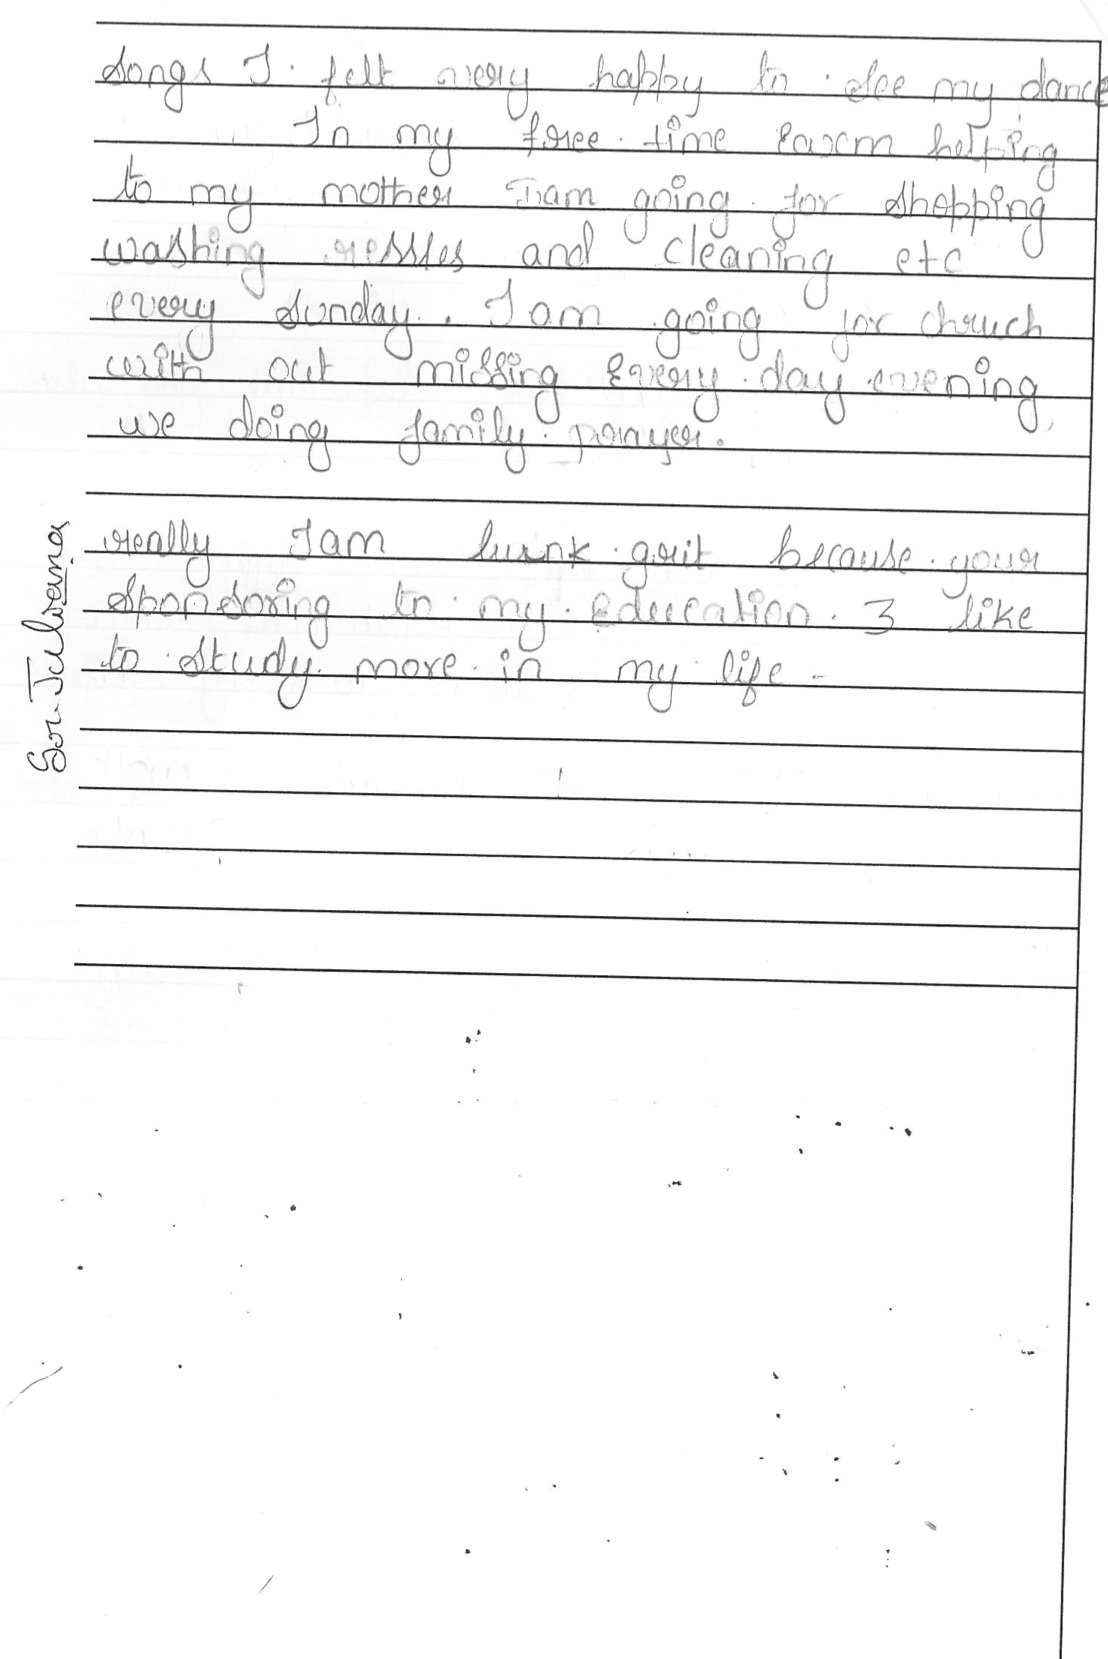 songs I. felt very happy to see my dance
In my free time helping
to my mother I am going for shopping
washing and cleaning etc
every sunday. I am going for chruch
with out missing every day evening
we doing family prayer.
really I am because your
sponsoring to my education. I like
to study more in my life -
Sor. Juliana